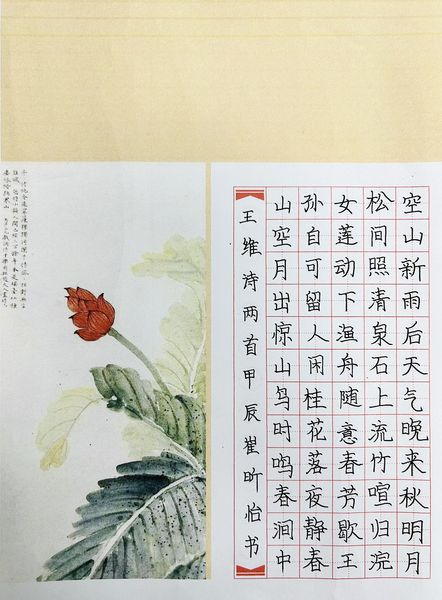 空山新雨后天气晚来秋明月
松间照清泉石上流竹喧归浣
女莲动下渔舟随意春芳歇王
孙自可留人闲桂花落夜静春
山空月出惊山鸟时鸣春涧中
王维诗两首甲辰崔昕怡书